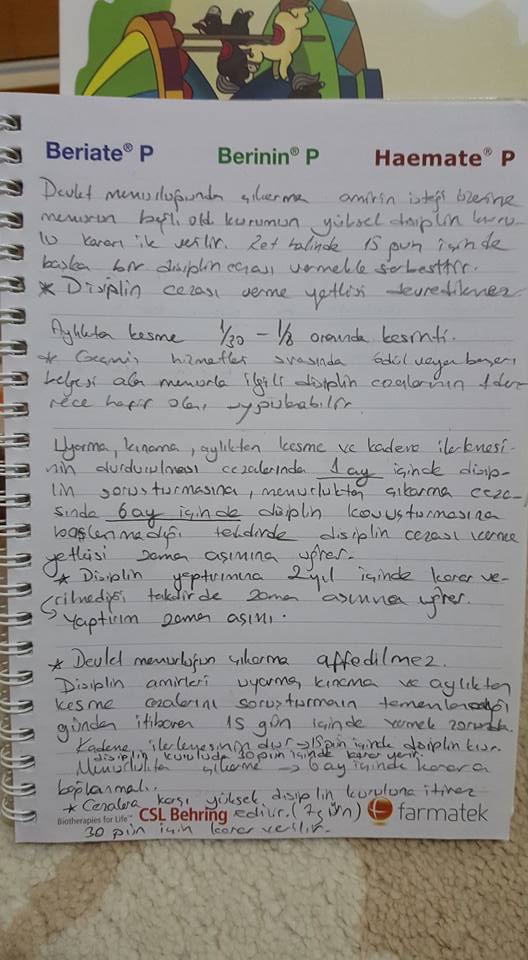 Beriate® P Berinin® P Haemate® P
Devlet memurluğundan çıkarma amirin isteği üzerine
memurun bağlı old. kurumun yüksek disiplin kuru-
lu kararı ile verilir. Ret halinde 15 gün içinde
başka bir disiplin cezası vermekte serbesttir.
* Disiplin cezası verme yetkisi devredilemez
Aylıkta kesme 1/30 - 1/8 oranında kesinti.
* Geçmiş hizmetler sırasında ödül veya başarı
belgesi alan memurla ilgili disiplin cezalarının 1 dere
rece hafif olanı uygulanabilir
Uyarma, kınama, aylıktan kesme ve kademe ilerlemesi-
nin durdurulması cezalarında 1 ay içinde disip-
lin soruşturmasına, memurluktan çıkarma ceza-
sında 6 ay içinde disiplin kovuşturmasına
başlanmadığı takdirde disiplin cezası verme
yetkisi zaman aşımına uğrar.
* Disiplin yaptırımına 2 yıl içinde karar ve-
rilmediği takdirde zaman aşımına uğrar.
Yaptırım zaman aşımı.
* Devlet memurluğun çıkarma affedilmez.
Disiplin amirleri uyarma, kınama ve aylıktan
kesme cezalarını soruşturmanın tamamlandığı
günden itibaren 15 gün içinde vermek zorunda.
Kademe ilerlemesinin dur → 15 gün içinde disiplin kur.
disiplin kuruluda 30 gün içinde karar verir.
Memurlukta çıkarma → 6 ay içinde karara
bağlanmalı.
* Cezalara karşı yüksek disiplin kuruluna itiraz
Biotherapies for Life™ CSL Behring edilir. (7 gün) farmatek
30 gün için karar verilir.